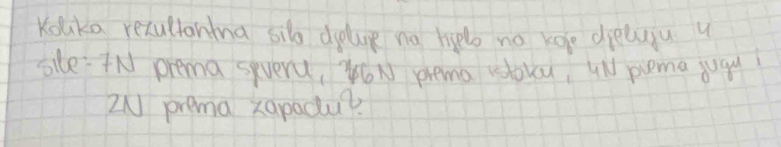 Kolika rezultantna sila djeluje na tijelo na koje djeluju 4
sile: 7N prema sjeveru, 6N prema istoku, 4N prema jugu i
2N prema zapadu?